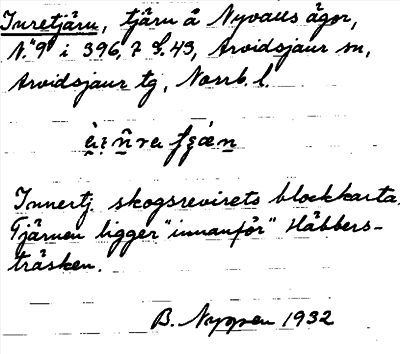 Inretjärn, tjärn å Nyvalls ägor,
N:o 9 i 396, 7 f. 43, Arvidsjaur sn,
Arvidsjaur tg, Norrb. l.
Innertj. skogsrevirets blockkarta.
Tjärnen ligger "innanför" Håbbers-
träsken.
B. Nyman 1932